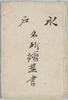 水戸
名所繪葉書